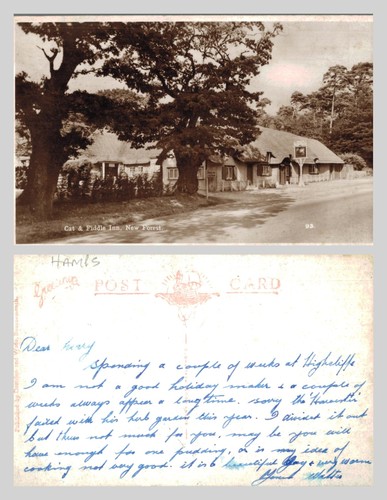 Cat & Fiddle Inn, New Forest
HANTS
Greetings
POST CARD
Dear
Spending a couple of weeks at Highcliffe
I am not a good holiday maker & a couple of
weeks always appear a long time, sorry the
failed with his herb garden this year. I divided it out
but thus not much for you, may be you will
have enough for one pudding, or is my idea of
cooking not very good. it is a beautiful day & very warm